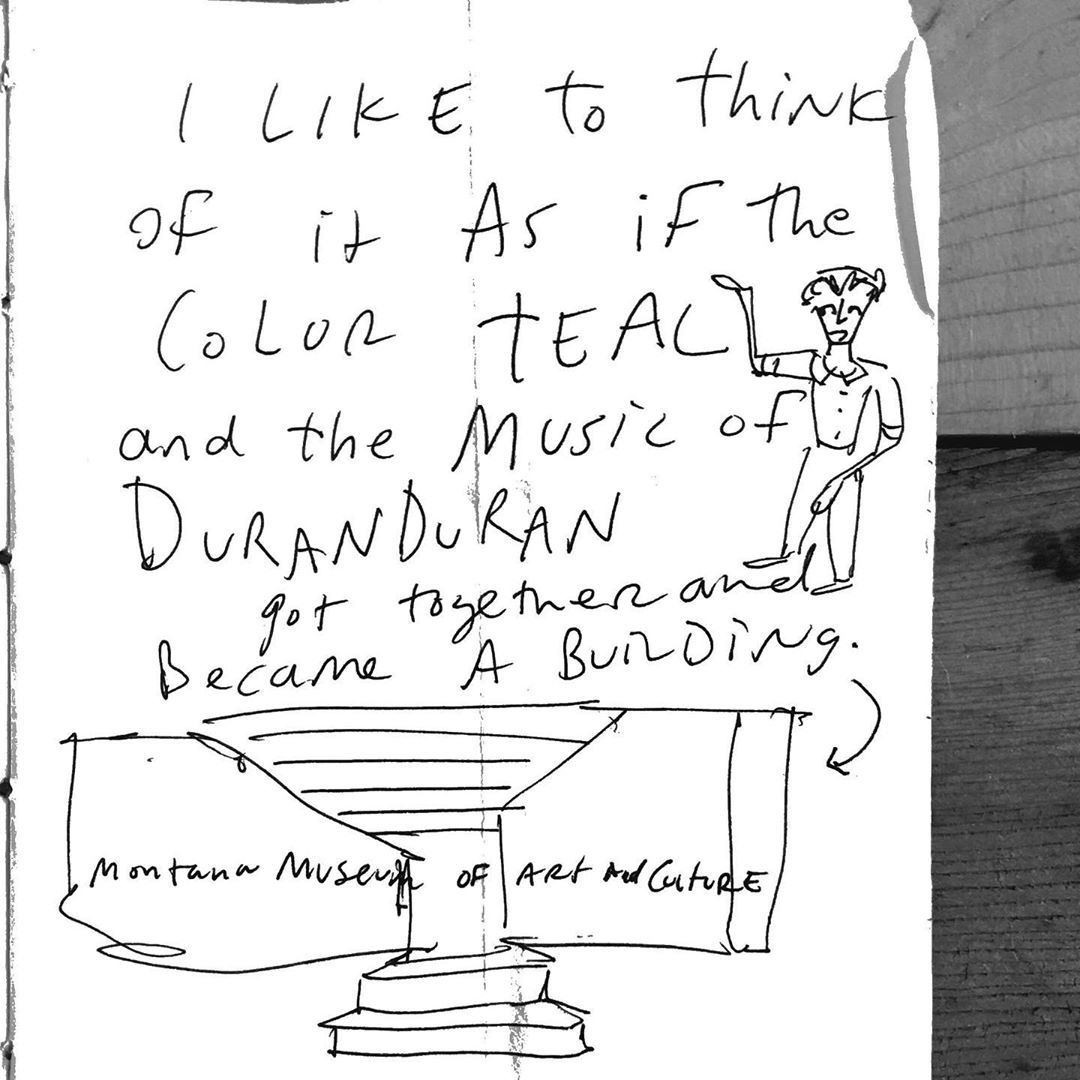 I LIKE to think
of it As iF the
COLOR TEAL
and the Music of
DURANDURAN
got together and
Became A BuilDiNg.
Montana Museum OF ART And CultuRE